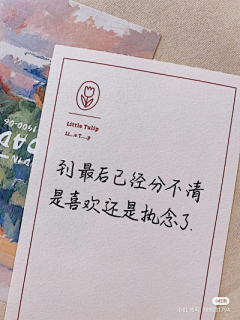 Little Tulip
到最后已经分不清
是喜欢还是执念了.
小红书